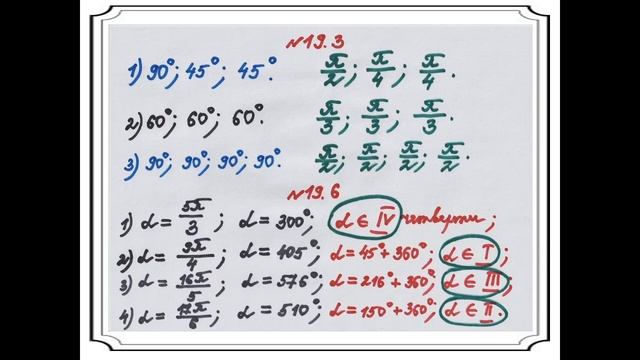 №19.3
1) 90°; 45°; 45°. π/2; π/4; π/4.
2) 60°; 60°; 60°. π/3; π/3; π/3.
3) 90°; 90°; 90°; 90°. π/2; π/2; π/2; π/2.
№19.6
1) α = 5π/3; α = 300°; α ∈ IV четверти;
2) α = 9π/4; α = 405°; α = 45° + 360°; α ∈ I;
3) α = 16π/5; α = 576°; α = 216° + 360°; α ∈ III;
4) α = 17π/6; α = 510°; α = 150° + 360°; α ∈ II.